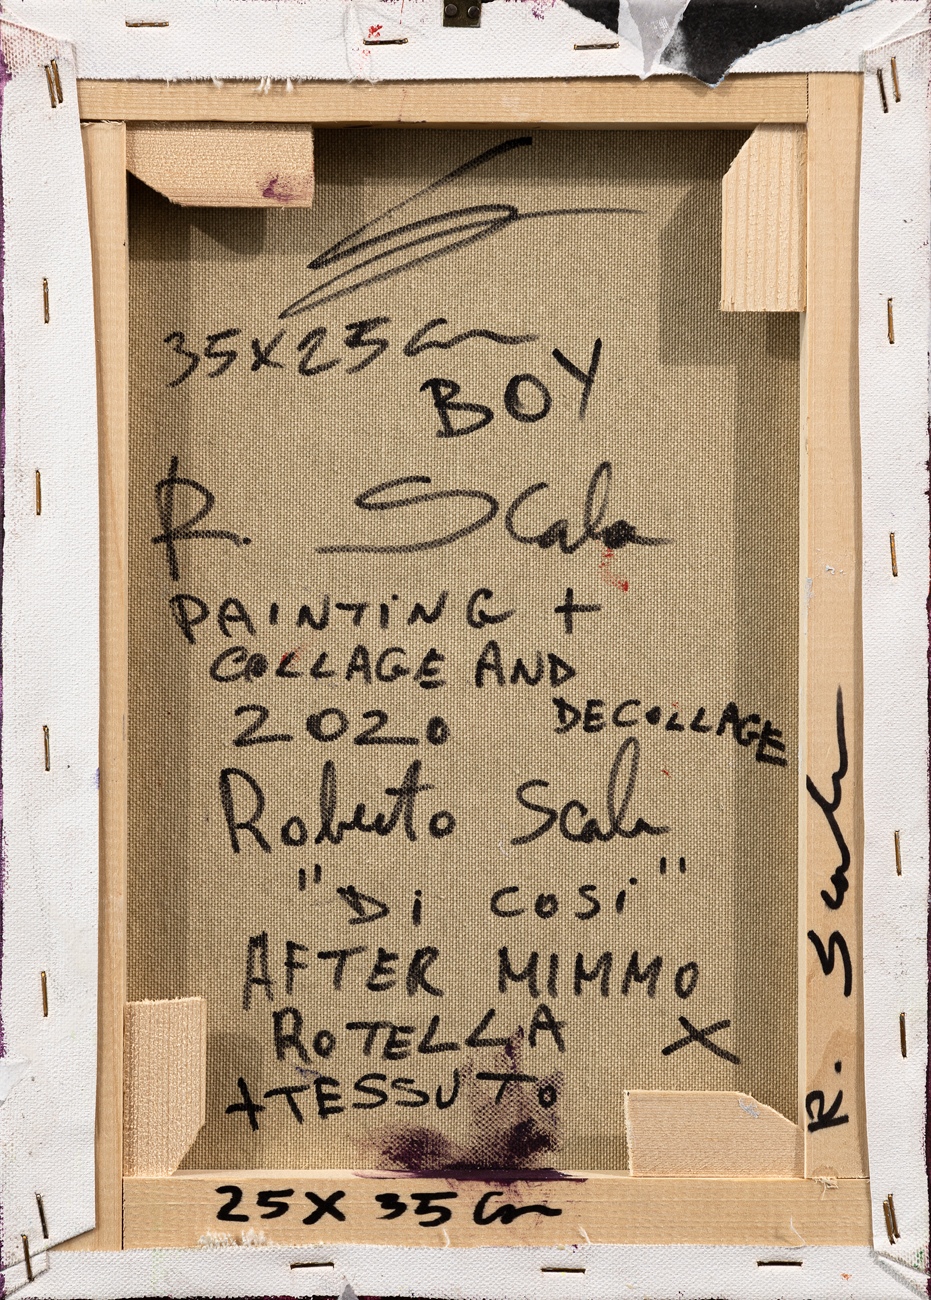 35X25 cm
BOY
R. Scala
PAINTING +
COLLAGE AND
2020 DECOLLAGE
Roberto Scala
"Di cosi"
AFTER MIMMO
ROTELLA X
+TESSUTO
25X35 cm
R. Scala